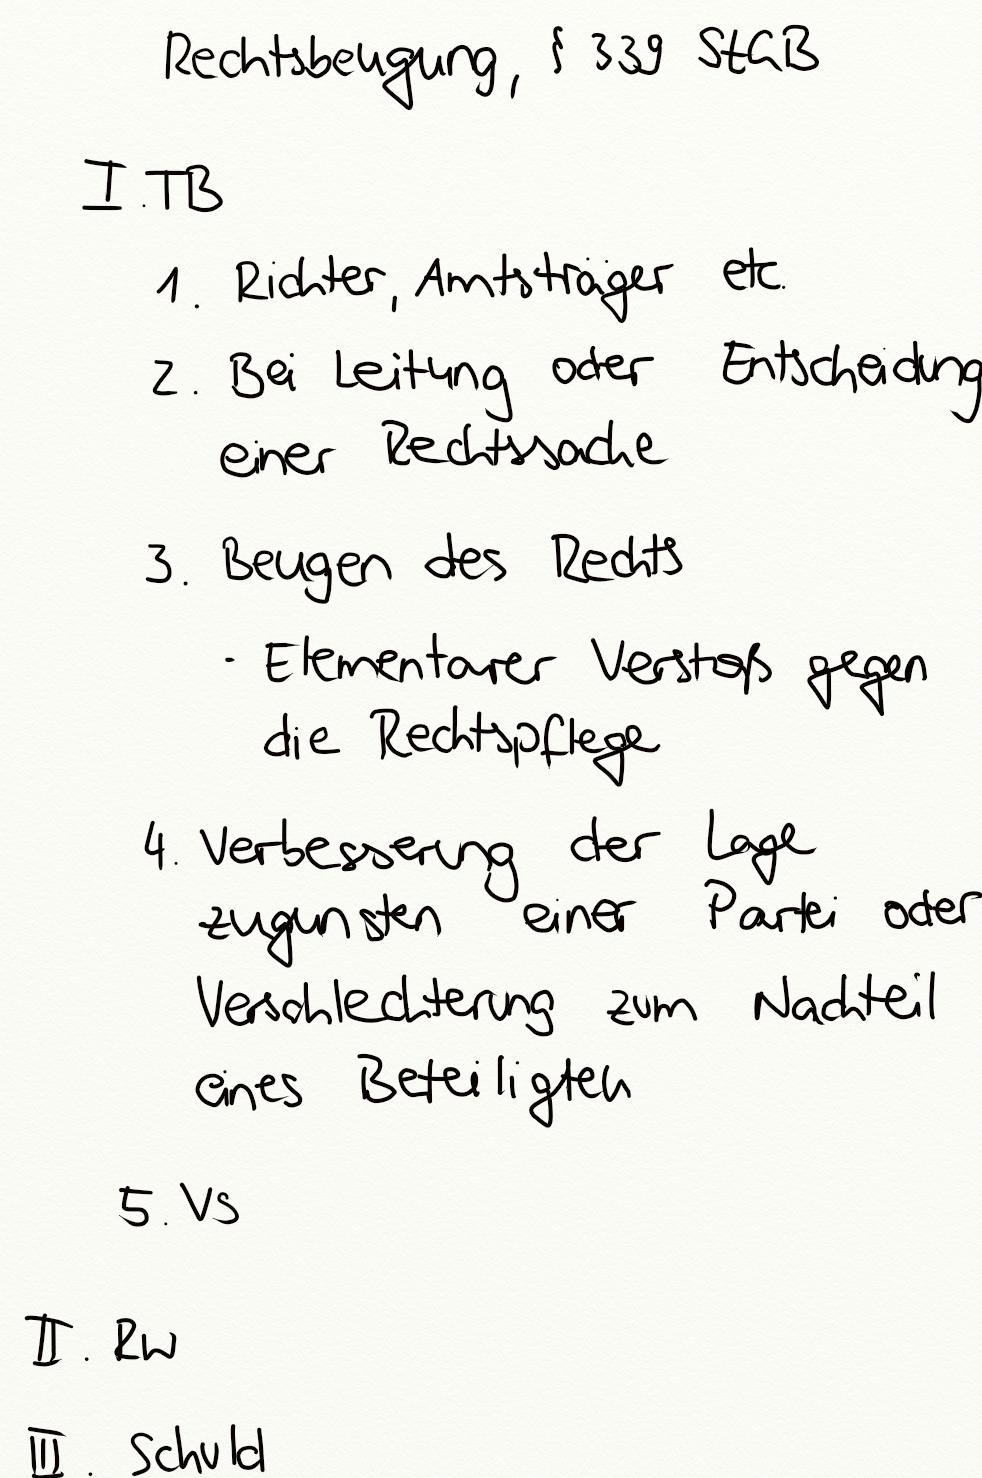 Rechtsbeugung, § 339 StGB
I. TB
1. Richter, Amtsträger etc.
2. Bei Leitung oder Entscheidung
einer Rechtssache
3. Beugen des Rechts
- Elementarer Verstoß gegen
die Rechtspflege
4. Verbesserung der Lage
zugunsten einer Partei oder
Verschlechterung zum Nachteil
eines Beteiligten
5. Vs
II. RW
III. Schuld